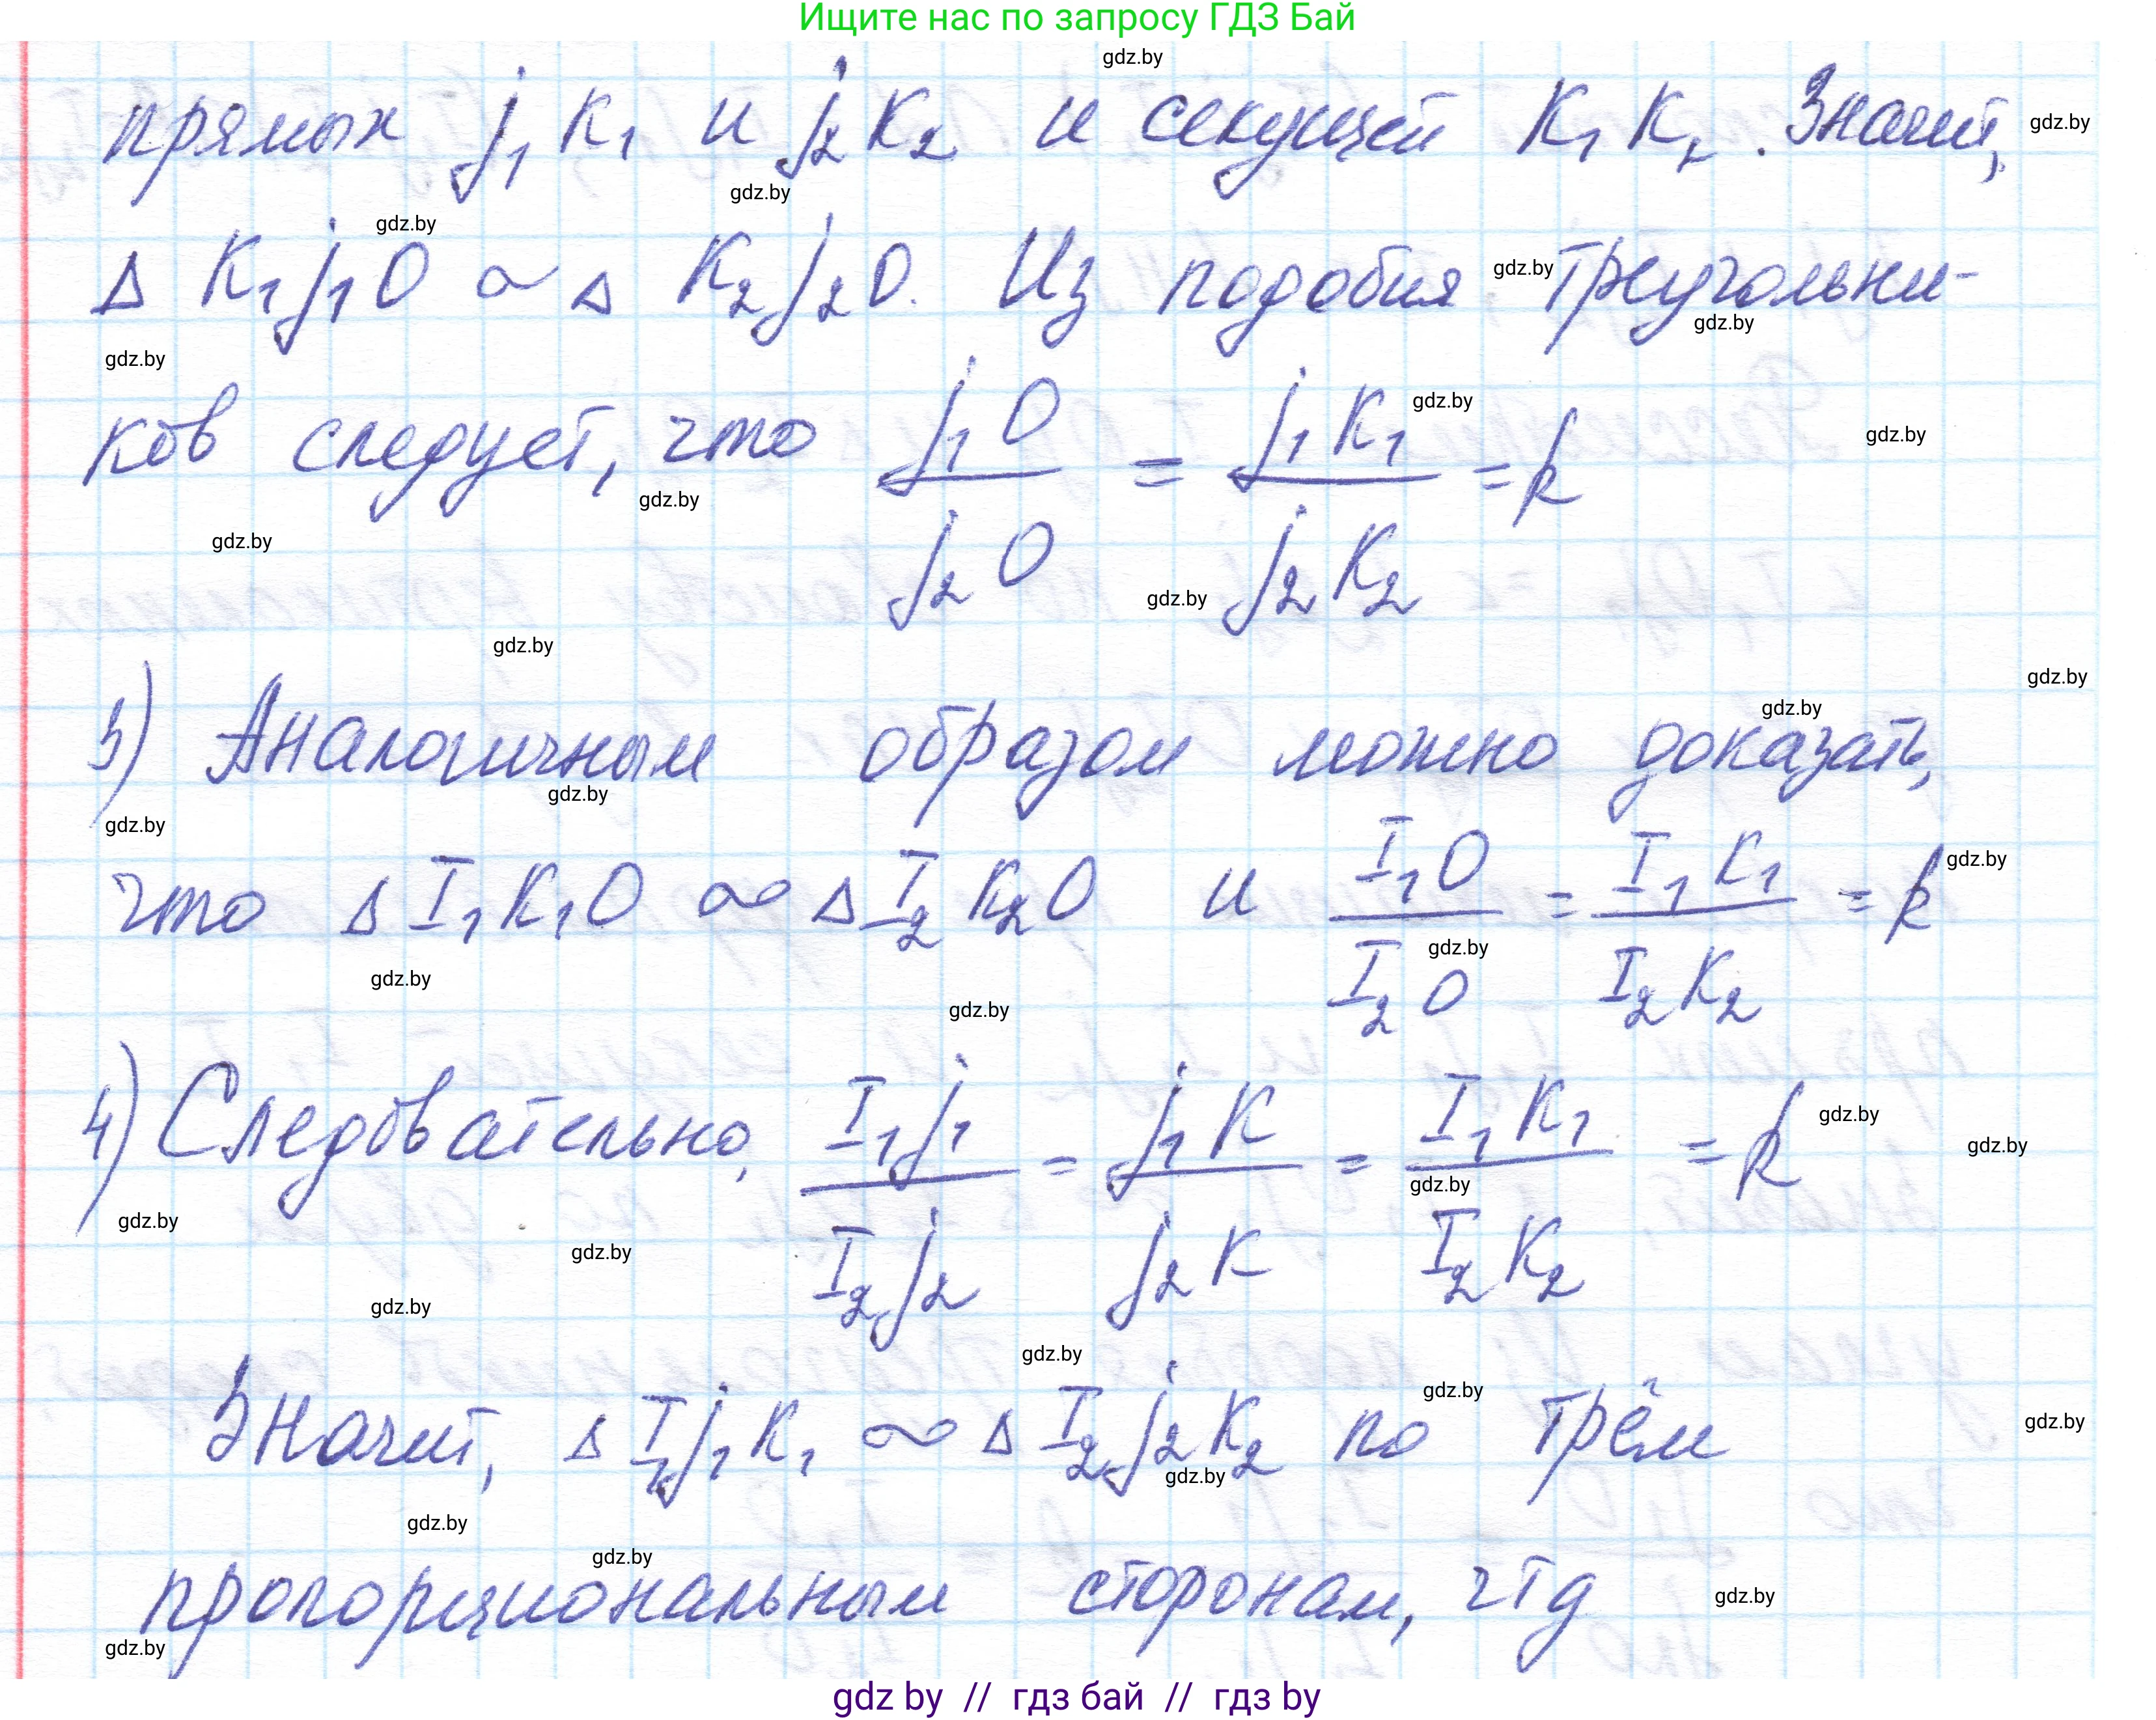 Ищите нас по запросу ГДЗ Бай
прямых j₁K₁ и j₂K₂ и секущей K₁K₂. Значит,
Δ K₁j₁O ∼ Δ K₂j₂O. Из подобия треугольни-
ков следует, что j₁O/j₂O = j₁K₁/j₂K₂ = k
3) Аналогичным образом можно доказать,
что Δ I₁K₁O ∼ Δ I₂K₂O и I₁O/I₂O = I₁K₁/I₂K₂ = k
4) Следовательно, I₁j₁/I₂j₂ = j₁K/j₂K = I₁K₁/I₂K₂ = k
Значит, Δ I₁j₁K₁ ∼ Δ I₂j₂K₂ по трём
пропорциональным сторонам, чтд
gdz by // гдз бай // гдз by